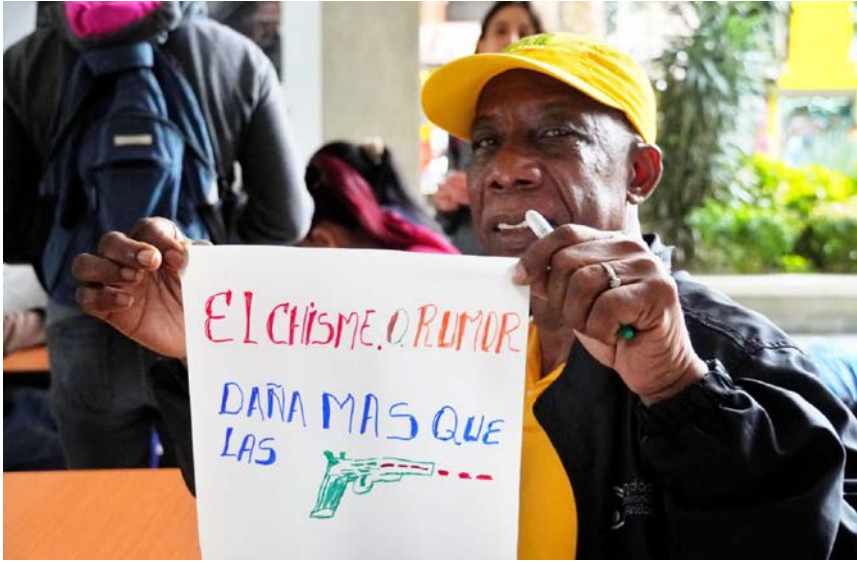 El CHiSME. O RUMOR
DAÑA MAS QUE
LAS